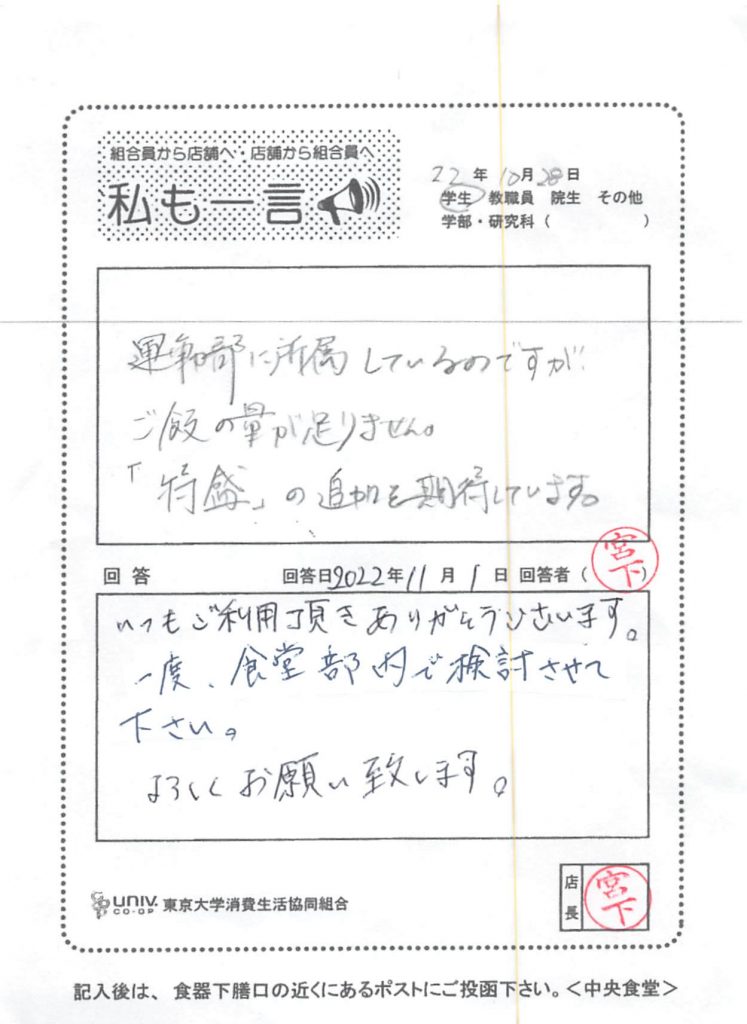 組合員から店舗へ・店舗から組合員へ
私も一言
22年10月28日
学生 教職員 院生 その他
学部・研究科( )
運動部に所属しているのですが、
ご飯の量が足りません。
「特盛」の追加を期待しています。
回答 回答日2022年11月1日 回答者(宮下)
いつもご利用頂きありがとうございます。
一度、食堂部内で検討させて
下さい。
よろしくお願い致します。
UNIV. CO-OP 東京大学消費生活協同組合
店長 宮下
記入後は、食器下膳口の近くにあるポストにご投函下さい。<中央食堂>